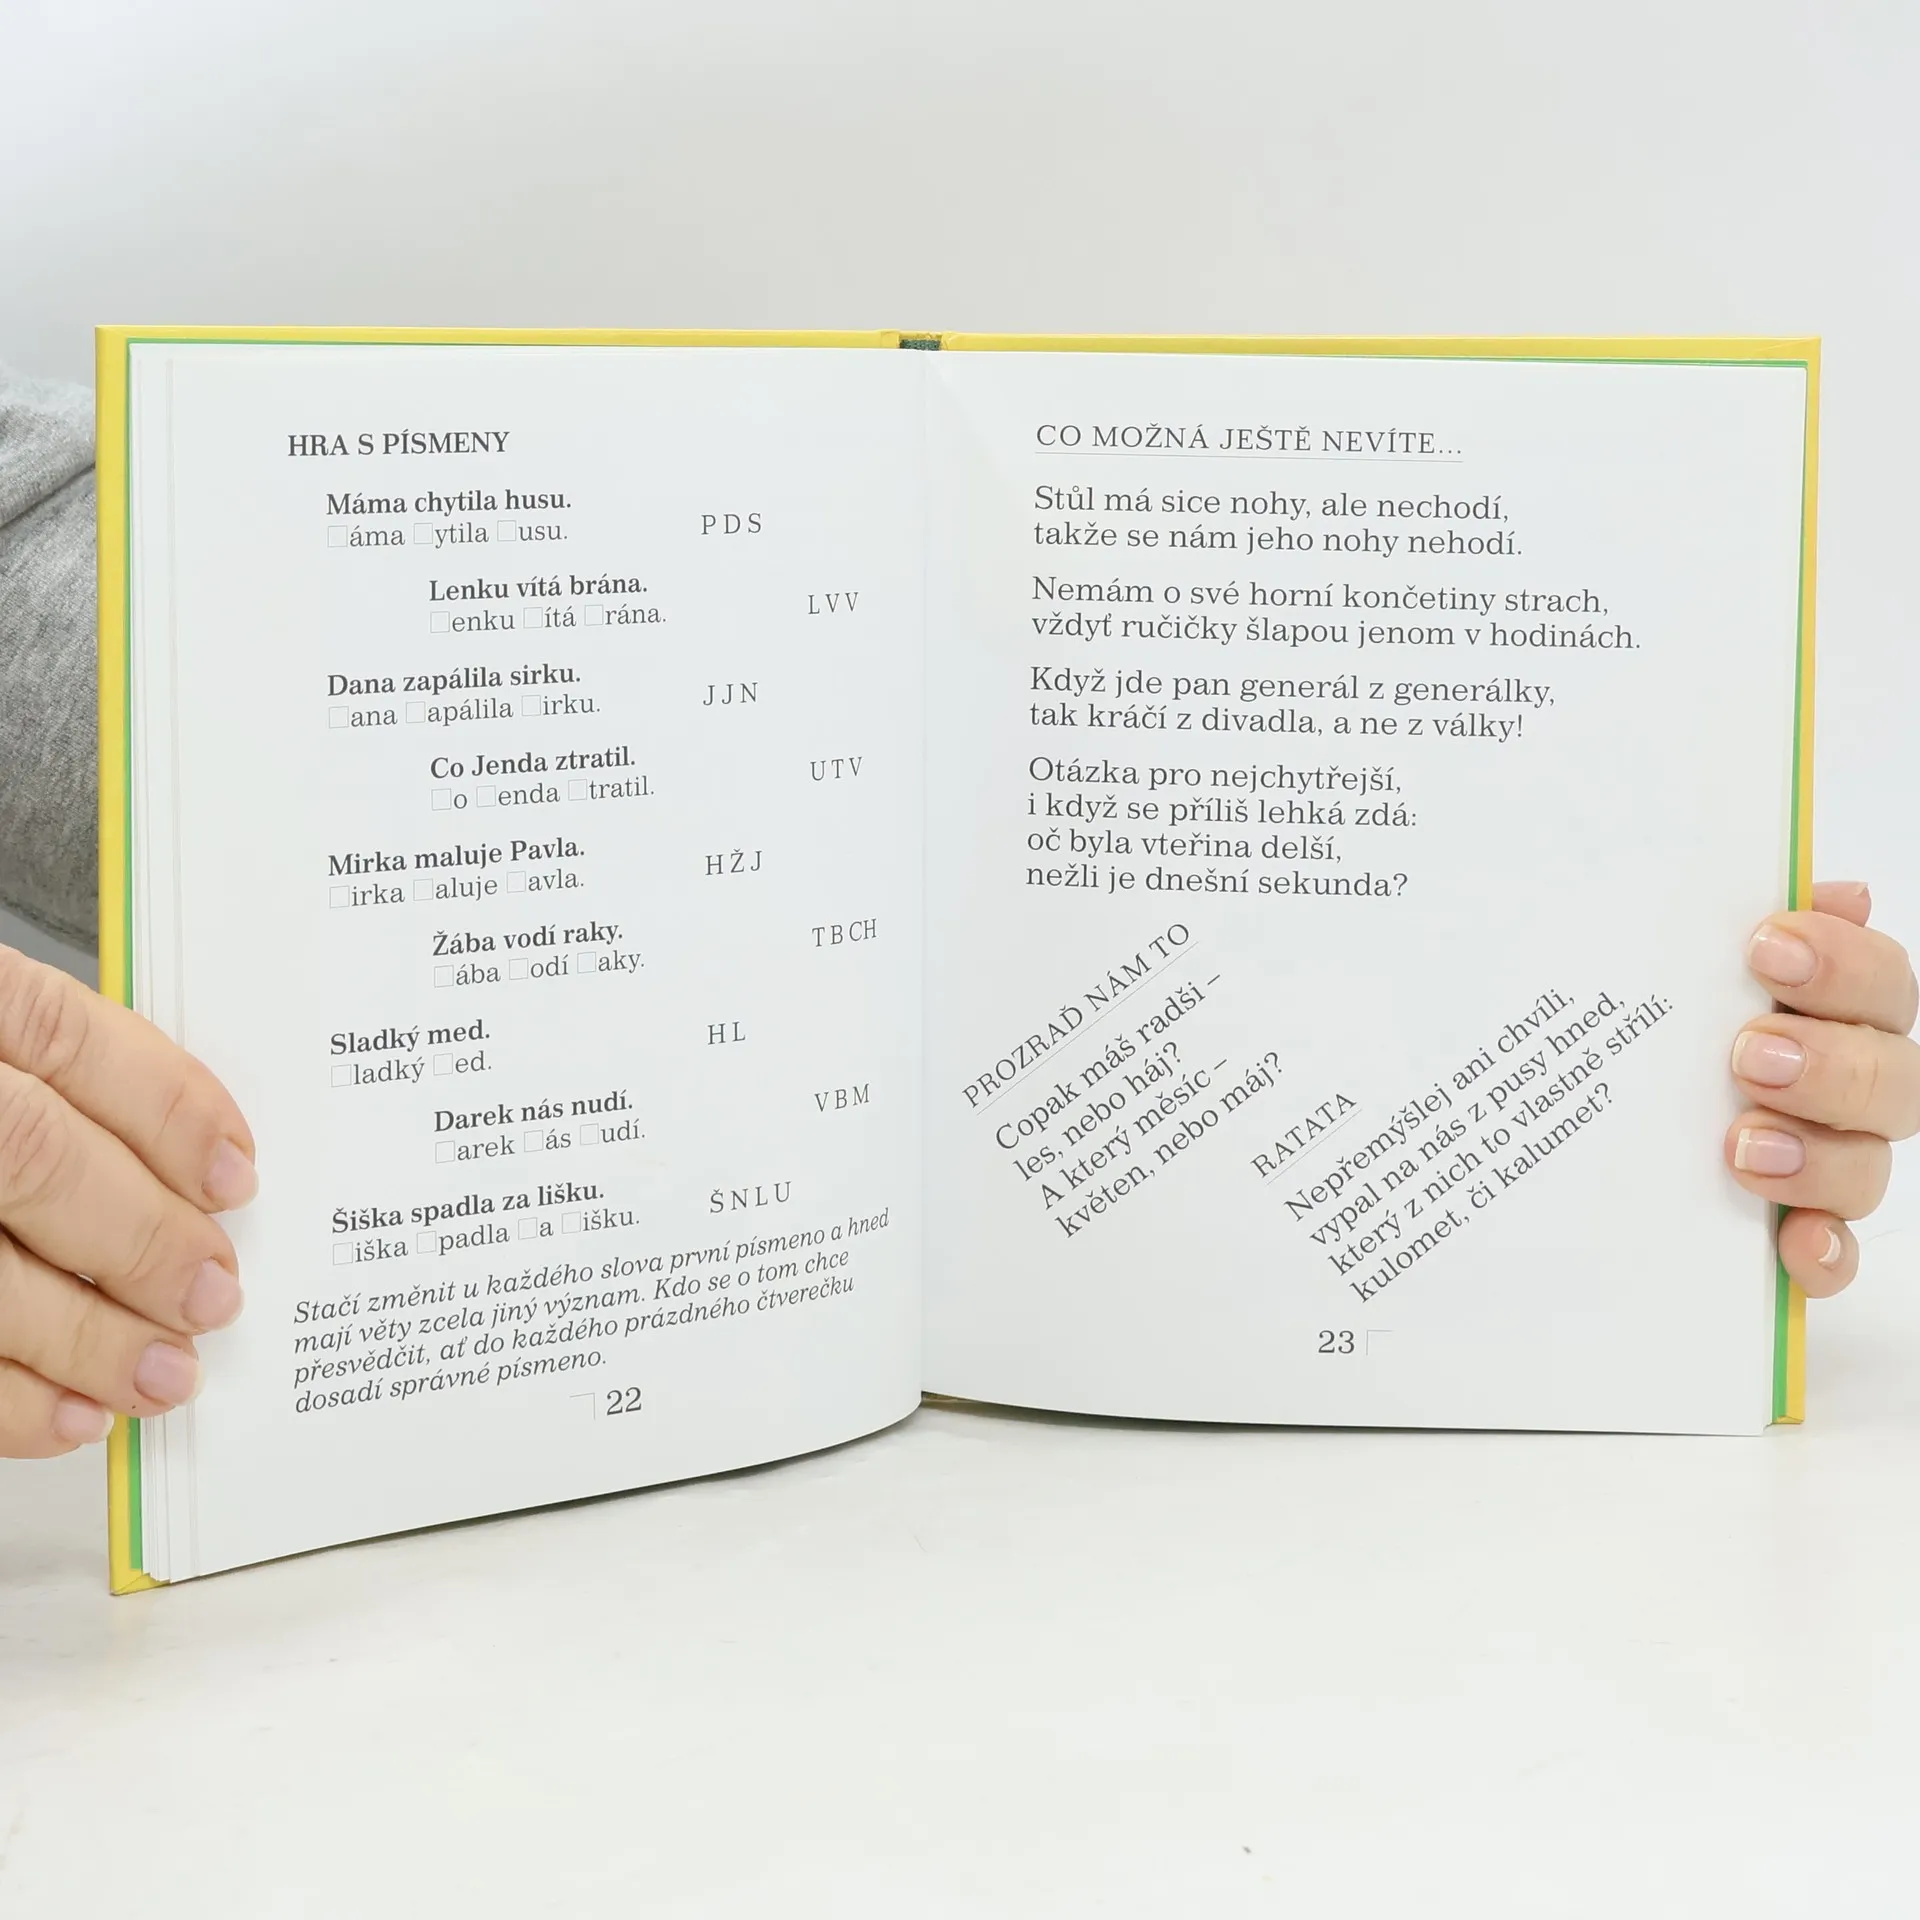 HRA S PÍSMENY
Máma chytila husu.
□áma □ytila □usu. P D S
Lenku vítá brána.
□enku □ítá □rána. L V V
Dana zapálila sirku.
□ana □apálila □irku. J J N
Co Jenda ztratil.
□o □enda □tratil. U T V
Mirka maluje Pavla.
□irka □aluje □avla. H Ž J
Žába vodí raky.
□ába □odí □aky. T B CH
Sladký med.
□ladký □ed. H L
Darek nás nudí.
□arek □ás □udí. V B M
Šiška spadla za lišku.
□iška □padla □a □išku. Š N L U
Stačí změnit u každého slova první písmeno a hned
mají věty zcela jiný význam. Kdo se o tom chce
přesvědčit, ať do každého prázdného čtverečku
dosadí správné písmeno.
22
CO MOŽNÁ JEŠTĚ NEVÍTE...
Stůl má sice nohy, ale nechodí,
takže se nám jeho nohy nehodí.
Nemám o své horní končetiny strach,
vždyť ručičky šlapou jenom v hodinách.
Když jde pan generál z generálky,
tak kráčí z divadla, a ne z války!
Otázka pro nejchytřejší,
i když se příliš lehká zdá:
oč byla vteřina delší,
nežli je dnešní sekunda?
PROZRAĎ NÁM TO
Copak máš radši –
les, nebo háj?
A který měsíc –
květen, nebo máj?
RATATA
Nepřemýšlej ani chvíli,
vypal na nás z pusy hned,
který z nich to vlastně střílí:
kulomet, či kalumet?
23